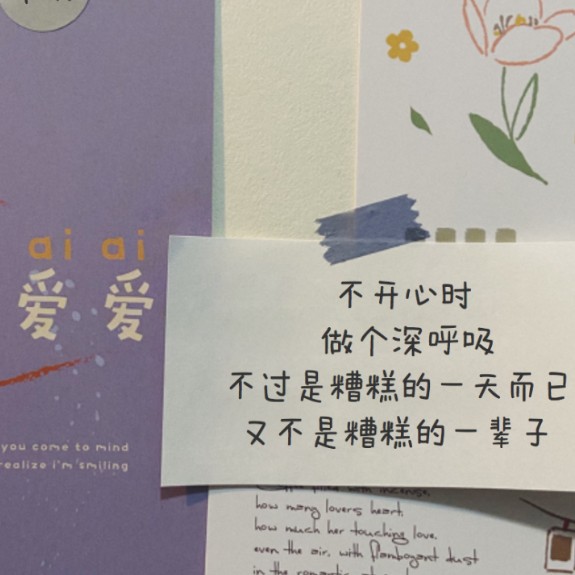 ai ai
爱 爱
you come to mind
realize i'm smiling
不开心时
做个深呼吸
不过是糟糕的一天而已
又不是糟糕的一辈子
with incense.
how many lovers heart.
how much her touching love.
even the air. with flamboyant dust
in the romantic